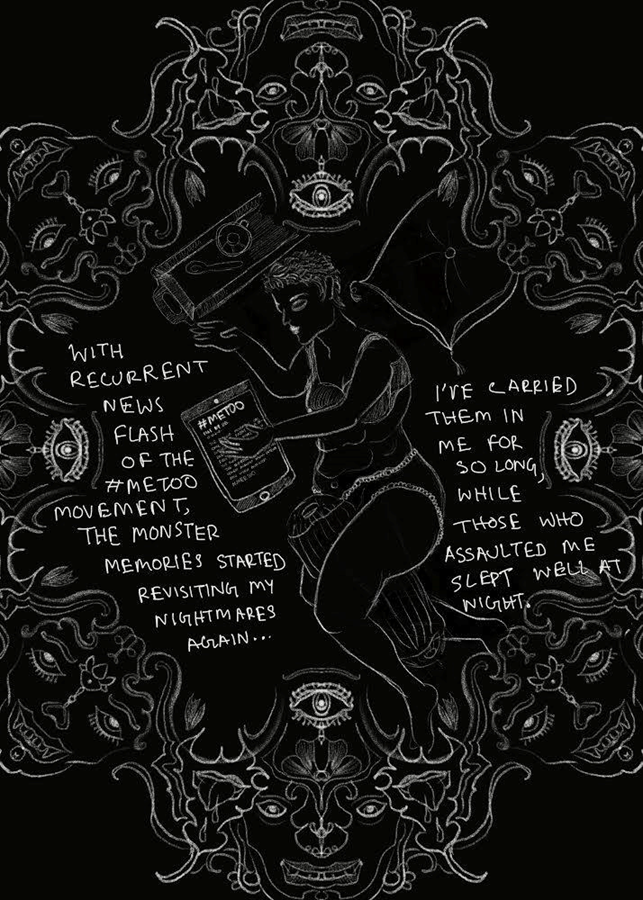 WITH
RECURRENT
NEWS
FLASH
OF THE
#METOO
MOVEMENT,
THE MONSTER
MEMORIES STARTED
REVISITING MY
NIGHTMARES
AGAIN...
#METOO
I'VE CARRIED
THEM IN
ME FOR
SO LONG,
WHILE
THOSE WHO
ASSAULTED ME
SLEPT WELL AT
NIGHT.